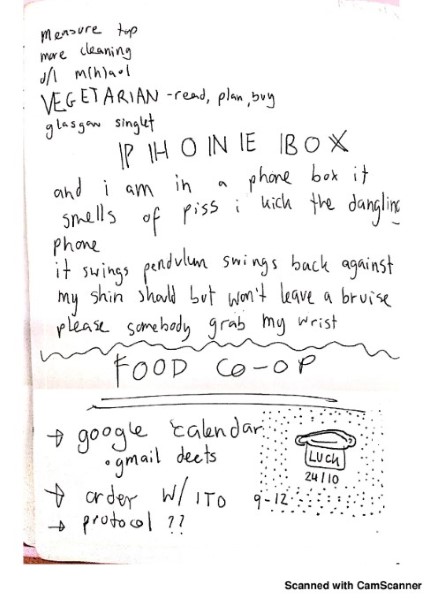 measure top
more cleaning
d/l m(h)aol
VEGETARIAN - read, plan, buy
glasgow singlet
PHONE BOX
and i am in a phone box it
smells of piss i kick the dangling
phone
it swings pendulum swings back against
my shin should but won't leave a bruise
please somebody grab my wrist
FOOD CO-OP
→ google calendar
• gmail deets
LUCH
24/10
→ order W/ ITO 9-12
→ protocol ??
Scanned with CamScanner